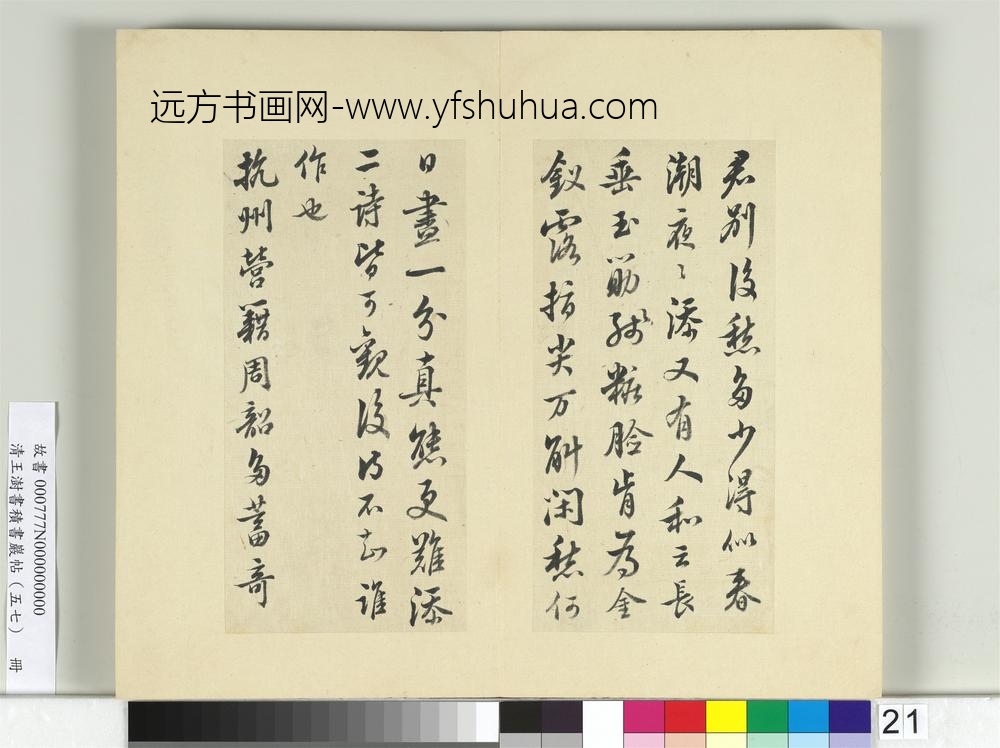 远方书画网-www.yfshuhua.com
君别後愁多少得似春
潮夜〻添又有人和云長
垂玉筯残粧臉肯為金
釵露指尖万斛闲愁何
日盡一分真態更難添
二诗皆可觀後诗不知誰
作也
杭州營籍周韶多蓄奇
故書 000777N000000000
清王澍書積書巖帖（五七） 冊
21